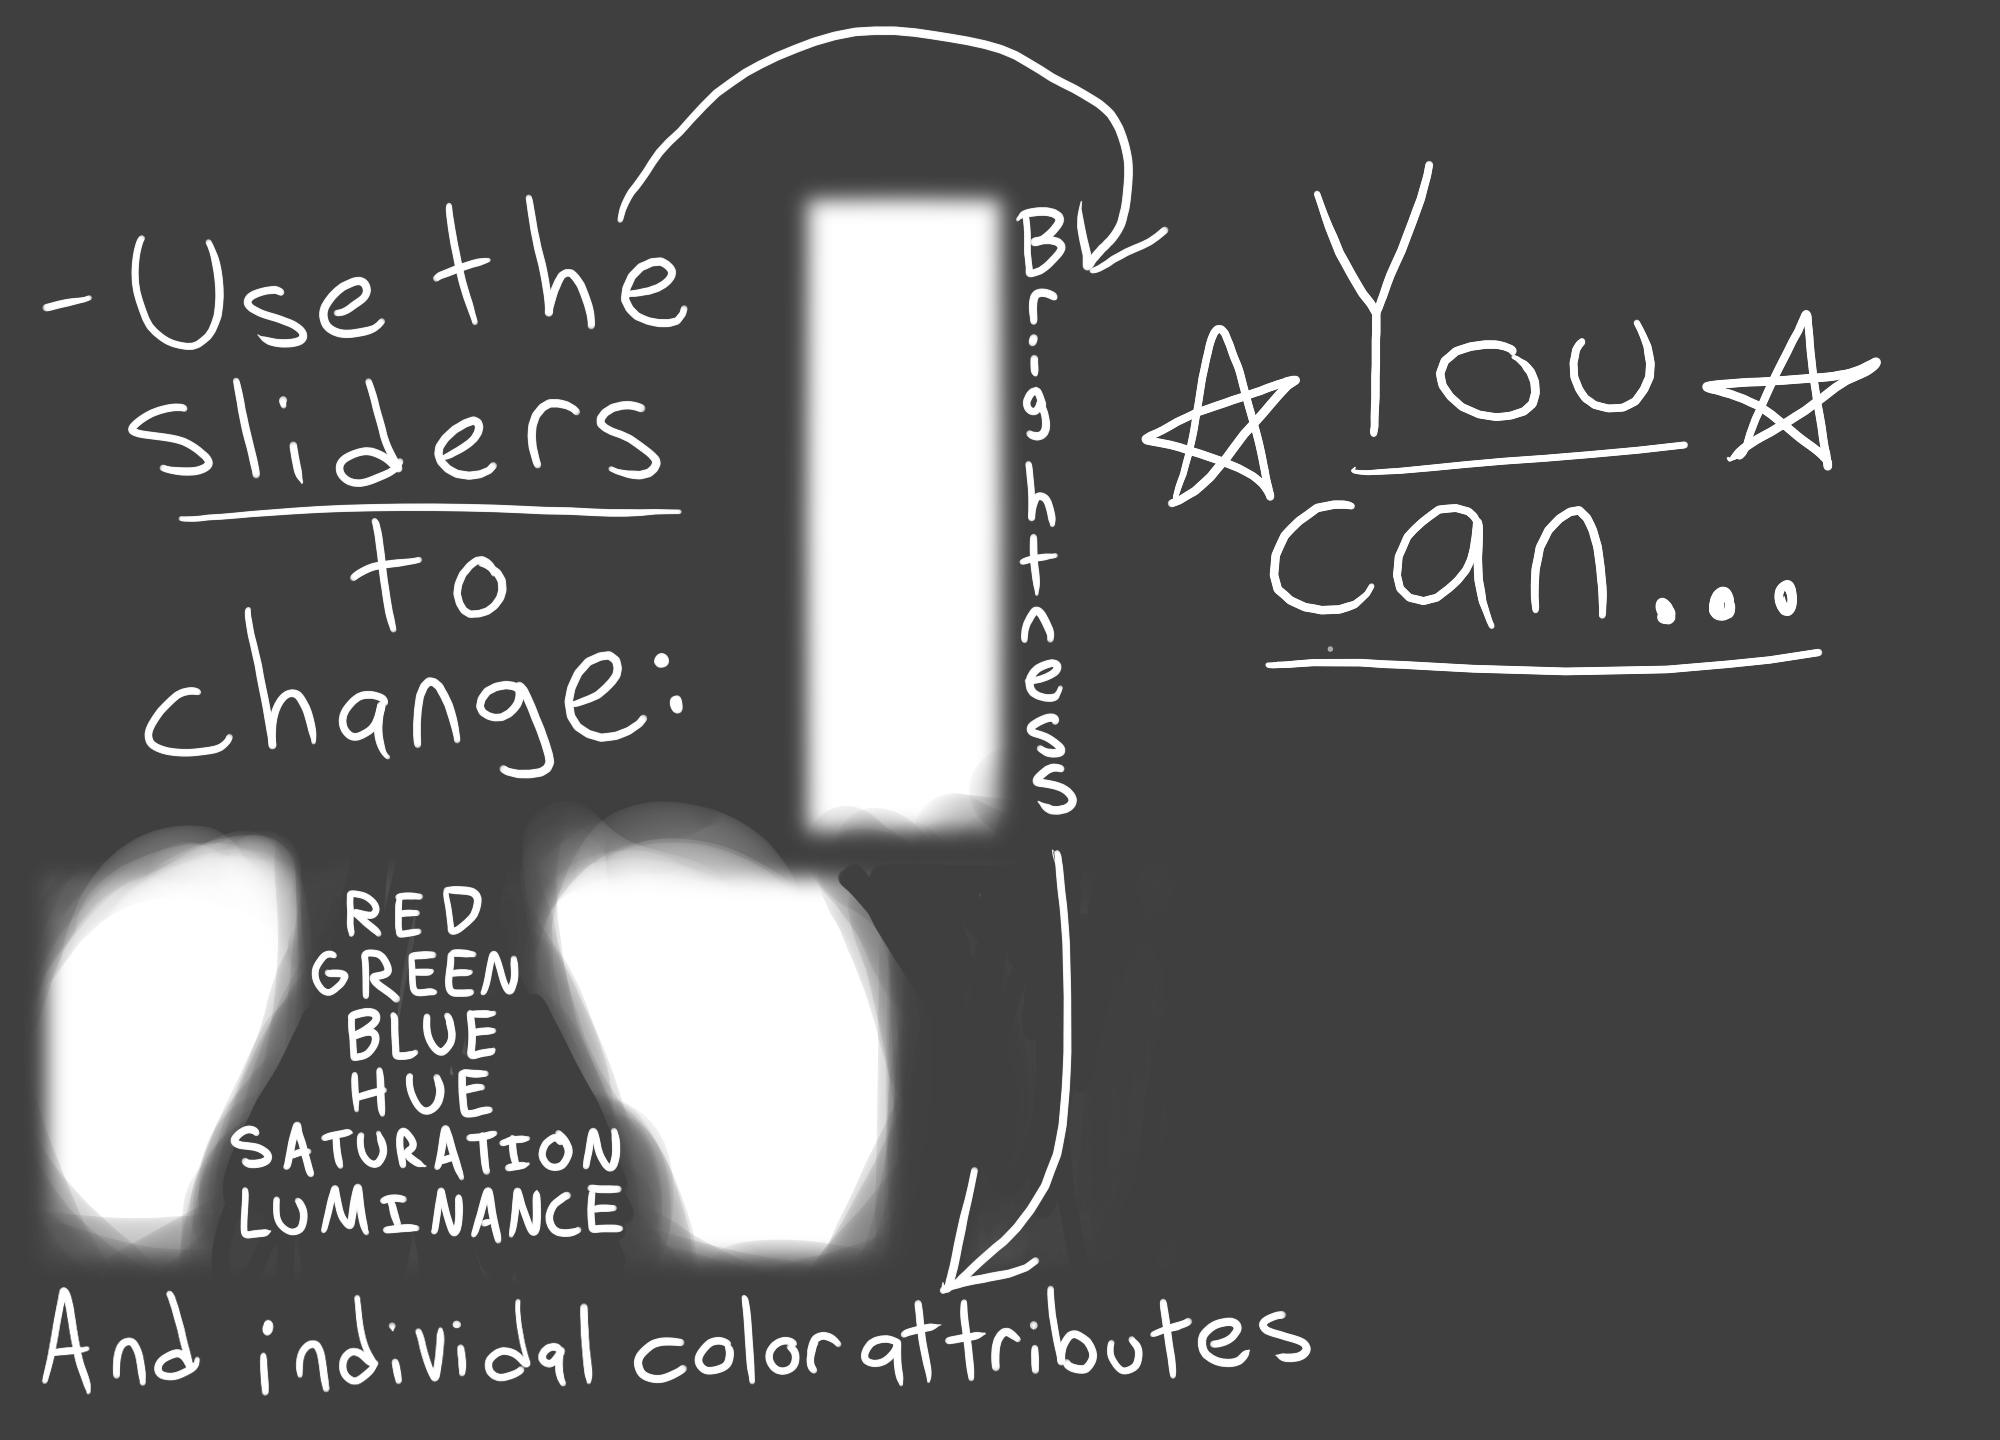 You
can...
- Use the
sliders
to
change:
Brightness
RED
GREEN
BLUE
HUE
SATURATION
LUMINANCE
And individal color attributes